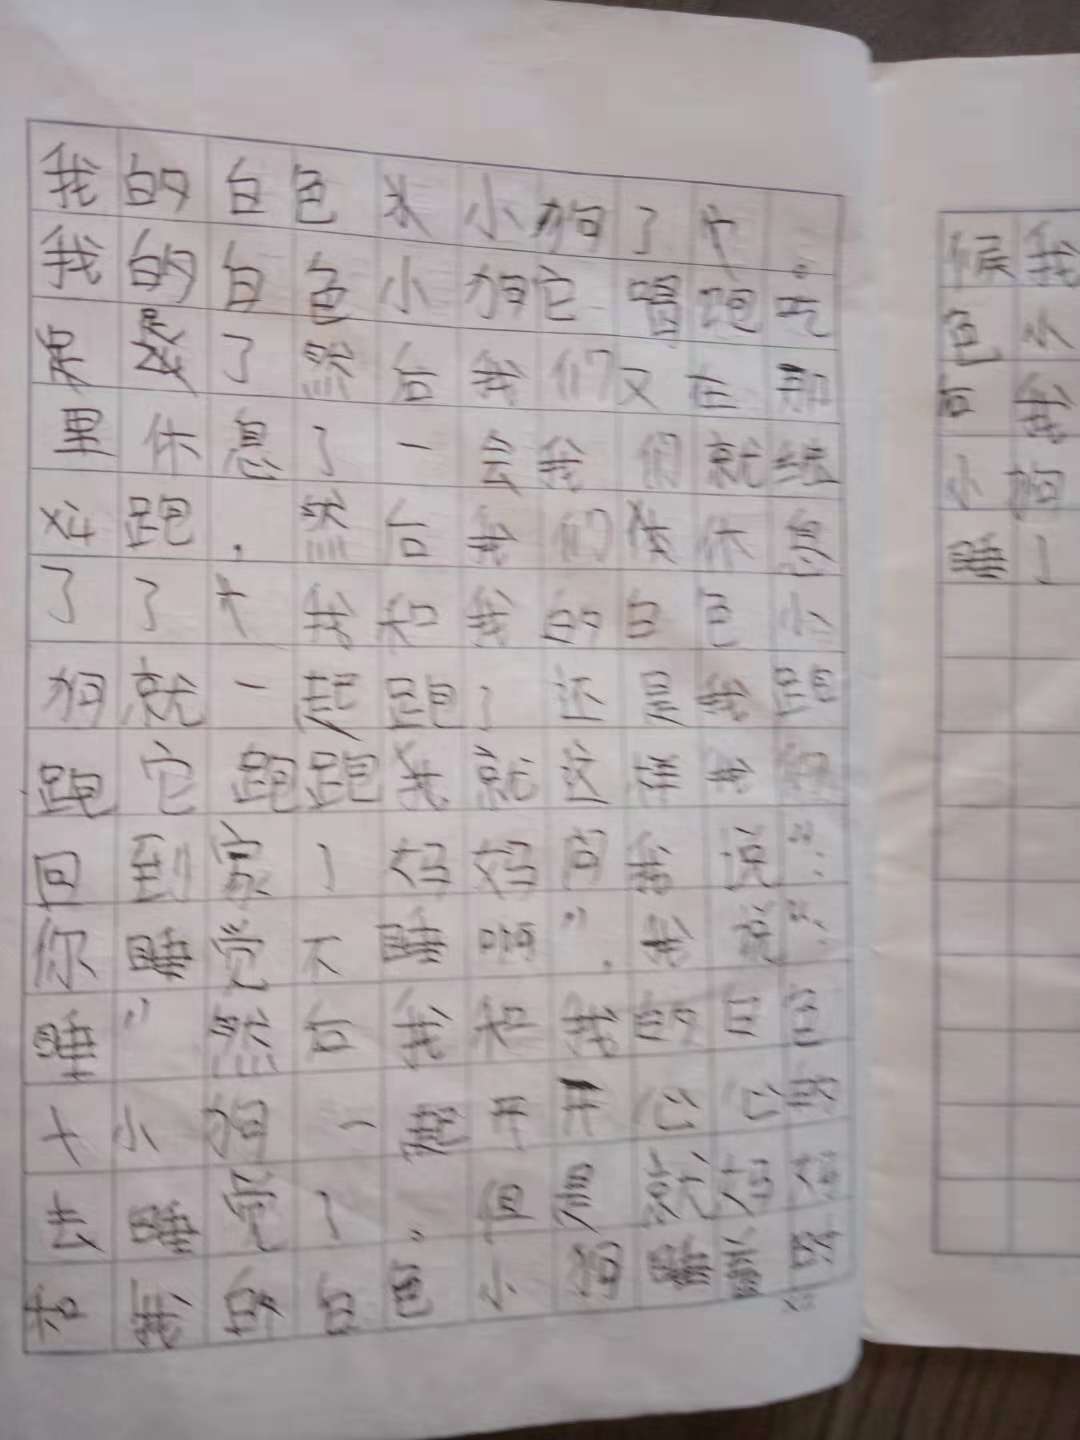 我的白色 小狗了 。
我的白色小狗它 跑吃
是 了然后我们又在那
里休息了一会我们就继
跑,然后我们 休息
了了 我和我的白色小
狗就一起跑了还是我跑
跑它跑跑我就这样我们
回到家了妈妈问我说“:
你睡觉不睡啊”,我说“:
睡”然后我和我的白色
小狗一起开开心心的
去睡觉了。但是就妈妈
和我的白色小狗睡着的
候我
色小
后我
小狗
睡了